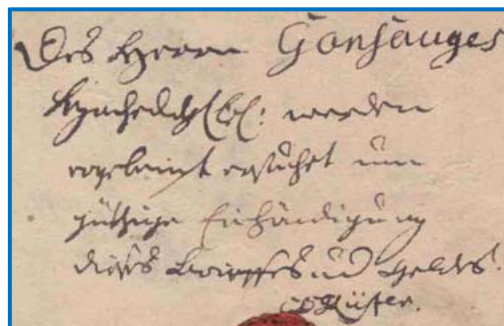 Des Herrn Gonsauges
werden
ergebenst ersuchet um
gühtige Einhändigung
dieses Brieffes und Geldes.
Küster.